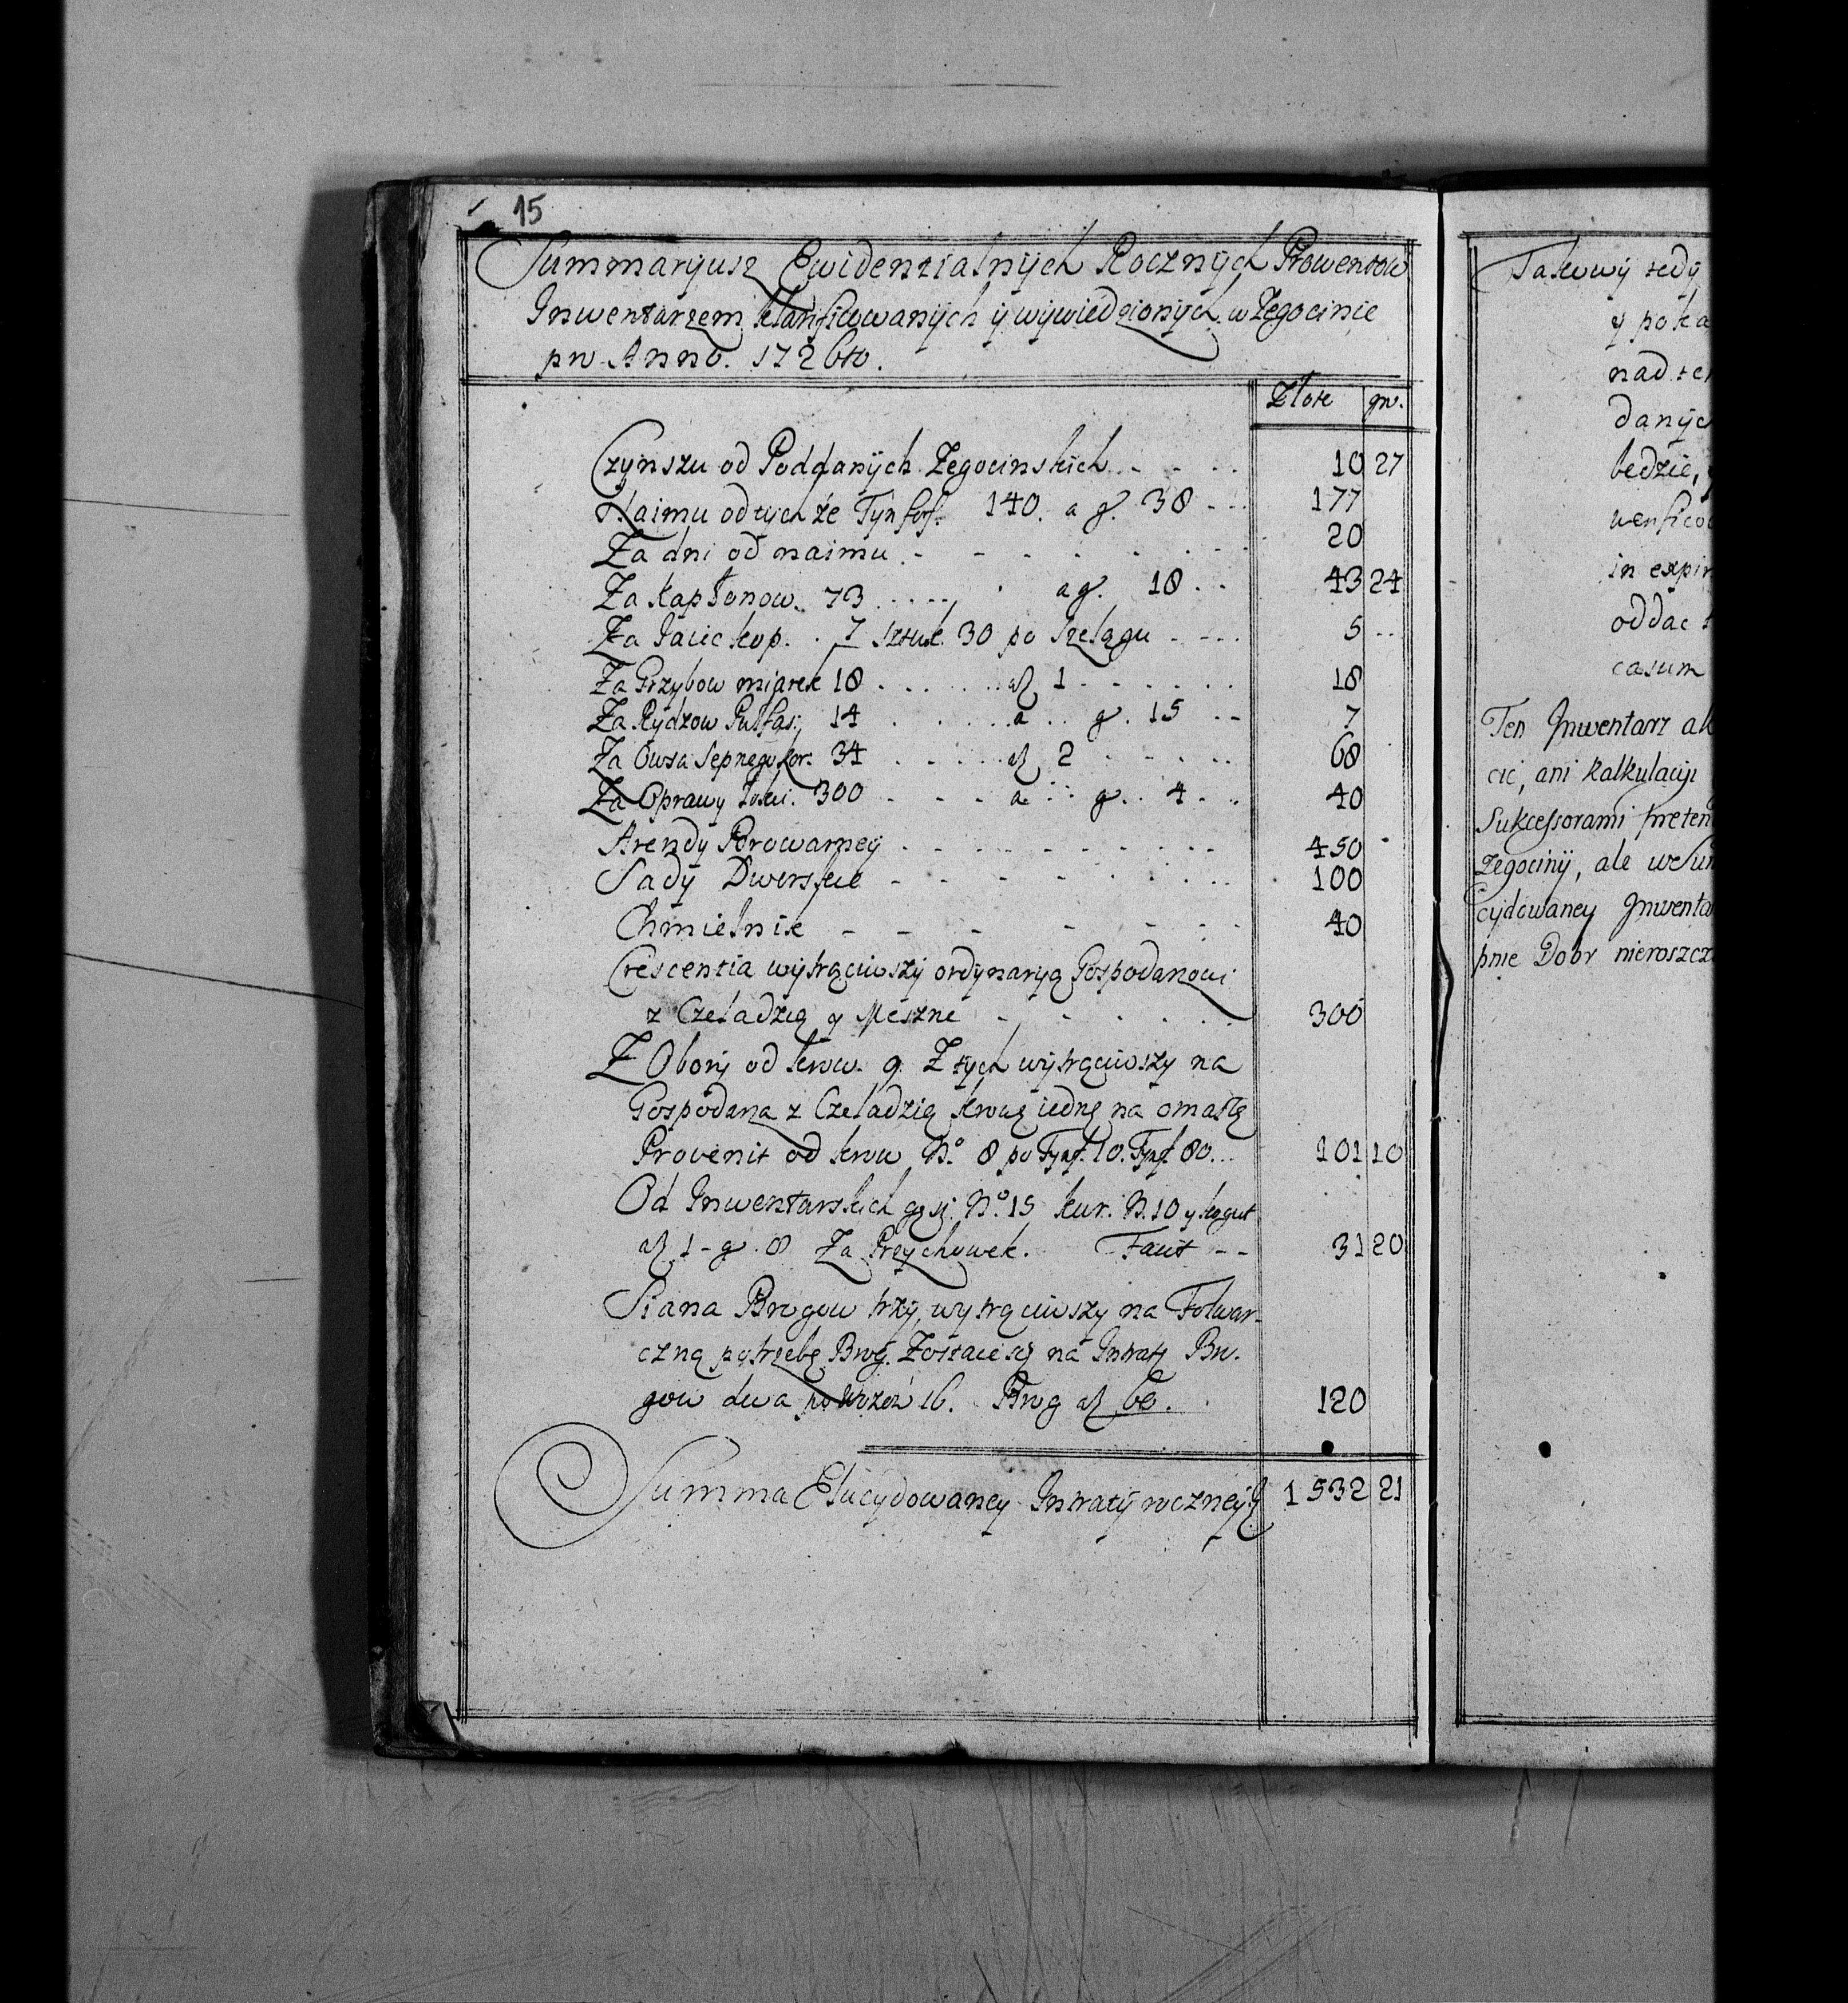 15
Summaryusz Ewidentialnÿch Rocznÿch Prowentow
Inwentarzem klarifikowanÿch ÿ wÿwiedzionÿch w Zegocinie
pro Anno. 1726to.
Złote gr.
Czÿnszu od Poddanÿch Zegocinskich 10 27
Naimu od tych że Tÿnfow. 140. a g. 38 177
Za dni od naimu 20
Za Kapłonow. 73 a g. 18 43 24
Za Jaiec kop. 7 sztuk 30 po szelągu 5
Za Grzybow miarek 18 a zł 1 18
Za Rÿdzow 14 a g. 15 7
Za Owsa Sepnego kor. 34 a zł 2 68
Za Oprawy 300 a g. 4 40
Arendÿ Browarneÿ 450
Sadÿ Dworskie 100
Chmielnik 40
Crescentia wÿtrąciwszÿ ordynaryą Gospodarzowi
z Czeladzią y Meszne 300
Z Oborÿ od krow. 9. Z tÿch wÿtrąciwszy na
Gospodarza z Czeladzią krowę iednę na omastę
Provenit od krow No. 8 po Tynf. 10. Tynf. 80. 101 10
Od Inwentarskich gęsi. No. 15 kur. N. 10 y kogut
a zł 1 - g. 8 Za Przychowek. Facit 31 20
Siana Brogow trzÿ, wytrąciwszy na Folwar-
czną potrzebę Brog. Zostaie się na Intratę Bro-
gow dwa po Wozow 16. Brog a zł 60. 120
Summa Elucydowaney Intratÿ roczneÿ 1532 21
Takowÿ tedÿ
y poka
nad te
danÿc
bedzie,
in expir
oddac
casum
Ten Inwentarz
cić, ani kalkulacÿi
Sukcessorami preten
Zegocinÿ, ale
cydowaney Inwenta
pnie Dobr nieroszcz